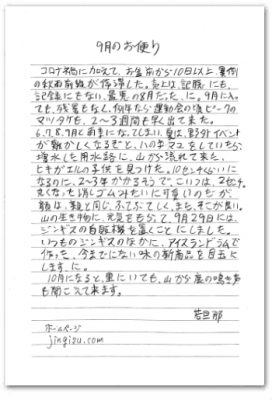 9月のお便り
コロナ禍に加えて、お盆前から10日以上、異例
の秋雨前線が停滞した。気分は、記憶にも、
記録にもない、最悪の8月だった、に。9月に入っ
ても、残暑もなく、例年なら運動会の頃ピークの
マツタケが、2〜3週間も早く出て来た。
6.7.8.9月と雨事になってしまい、夏は、野外イベント
が難がしくなるぞと、ハウスでヤマメをしていたら、
増水した用水路に、山から流れて来た、
ヒキガエルの子供を見つけた。10センチくらいに
なるのに、2〜3年かかるそうで、こいつは、2センチ
黒くなった消しゴムみたいに可愛いのだが
顔は、親と同じ、ふてぶてしく、また、そこが良い。
山の生き物に、元気をもらって、9月29日には、
ジンギスの自販機を置くことにしました。
いつものジンギスのなかに、アイスランドラムで
作った、今までにない味の新商品を目玉と
します、に。
10月になると、里にいても、山から鹿の鳴き声
も聞こえて来ます。
若旦那
ホームページ
jingisu.com